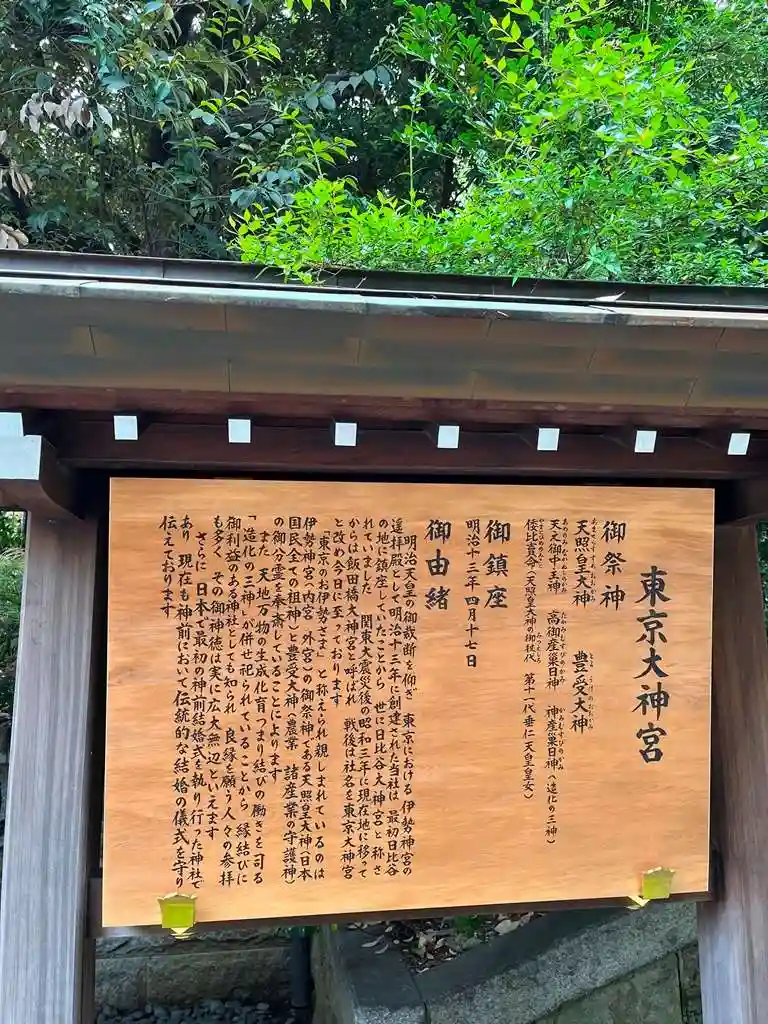 東京大神宮
御祭神
天照皇大神　豊受大神
天之御中主神　高御産巣日神　神産巣日神（造化の三神）
倭比賣命（天照皇大神の御杖代　第十一代垂仁天皇皇女）
御鎮座
明治十三年四月十七日
御由緒
明治天皇の御裁断を仰ぎ　東京における　伊勢神宮の
遥拝殿として明治十三年に創建された当社は　最初日比谷
の地に鎮座していたことから　世に日比谷大神宮と称さ
れていました　関東大震災後の昭和三年に現在地に移って
からは飯田橋大神宮と呼ばれ　戦後は社名を東京大神宮
と改め今日に至っております
「東京のお伊勢さま」と称えられ親しまれているのは
伊勢神宮（内宮　外宮）の御祭神である天照皇大神（日本
国民全ての祖神）と豊受大神（農業　諸産業の守護神）
の御分霊を奉斎していることによります
また　天地万物の生成化育つまり結びの働きを司る
「造化の三神」が併せ祀られていることから　縁結びに
御利益のある神社としても知られ　良縁を願う人々の参拝
も多く　その御神徳は実に広大無辺といえます
さらに　日本で最初の神前結婚式を執り行った神社で
あり　現在も神前において伝統的な結婚の儀式を守り
伝えております